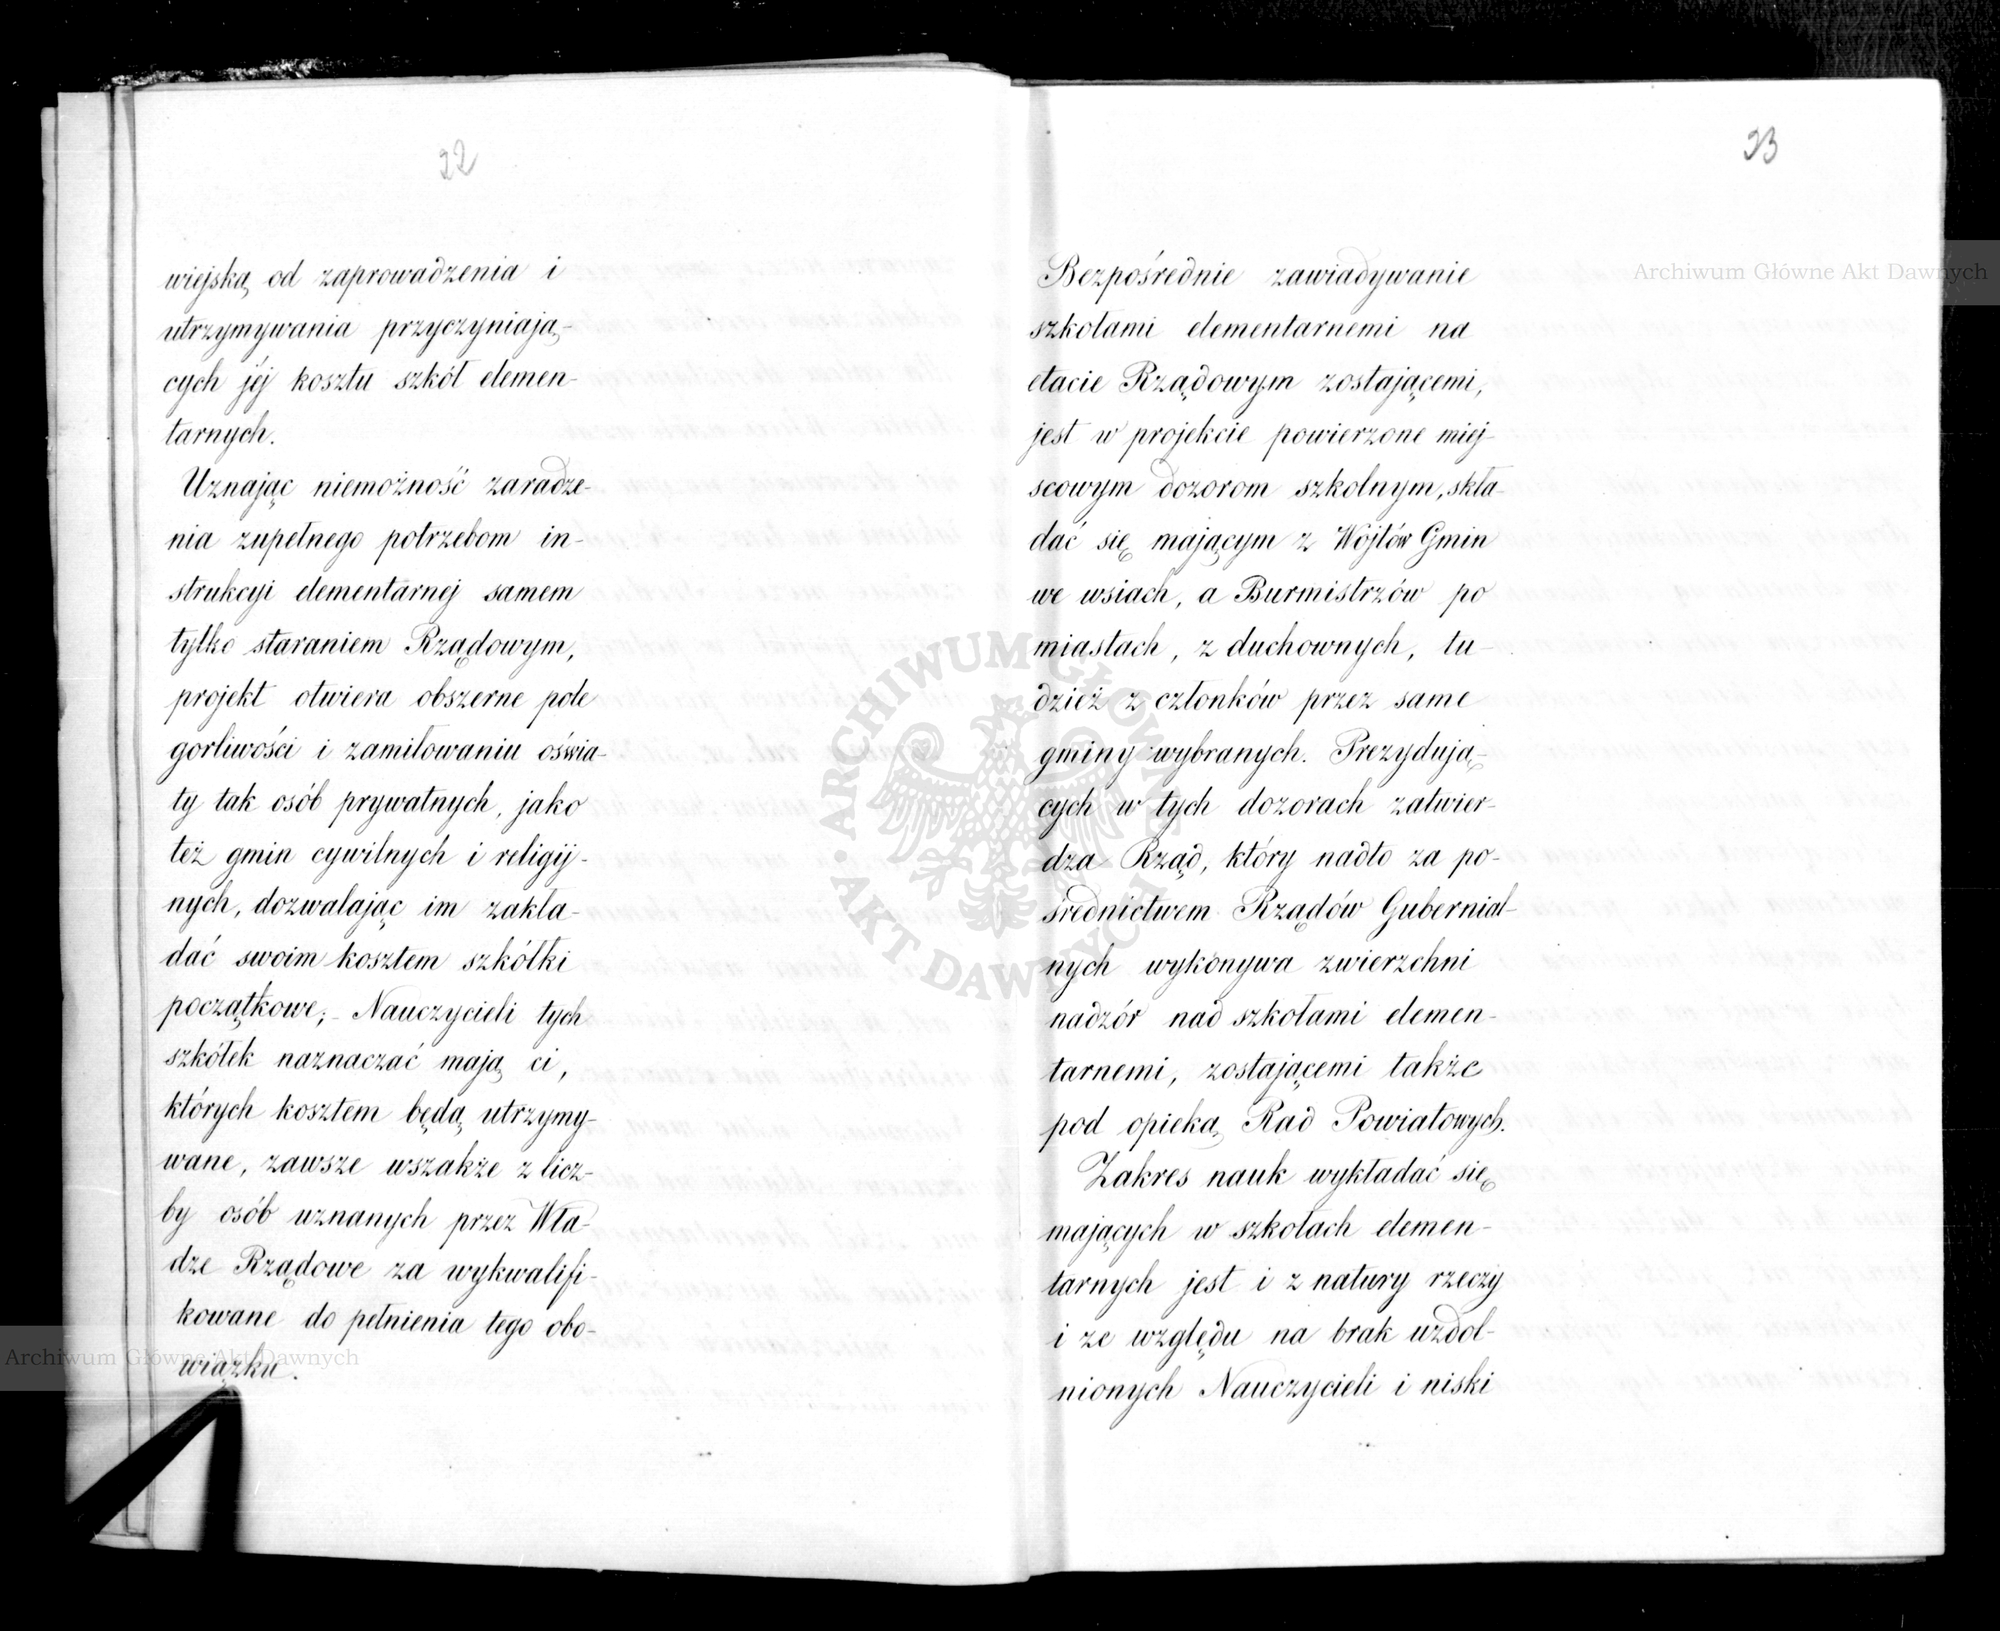 22
wiejską od zaprowadzenia i
utrzymywania przyczyniają-
cych jéj kosztu szkół elemen-
tarnych.
Uznając niemożność zaradze-
nia zupełnego potrzebom in-
strukcyi elementarnej samem
tylko staraniem Rządowym,
projekt otwiera obszerne pole
gorliwości i zamiłowaniu oświa-
ty tak osób prywatnych, jako
też gmin cywilnych i religij-
nych, dozwalając im zakła-
dać swoim kosztem szkółki
początkowe; Nauczycieli tych
szkółek naznaczać mają ci,
których kosztem będą utrzymy-
wane, zawsze wszakże z licz-
by osób uznanych przez Wła-
dze Rządowe za wykwalifi-
kowane do pełnienia tego obo-
wiązku.
23
Bezpośrednie zawiadywanie
szkołami elementarnemi na
etacie Rządowym zostającemi,
jest w projekcie powierzone miej-
scowym dozorom szkolnym, skła-
dać się mającym z Wójtów Gmin
we wsiach, a Burmistrzów po
miastach, z duchownych, tu-
dzież z członków przez same
gminy wybranych. Prezydują-
cych w tych dozorach zatwier-
dza Rząd, który nadto za po-
średnictwem Rządów Gubernial-
nych wykonywa zwierzchni
nadzór nad szkołami elemen-
tarnemi, zostającemi także
pod opieką Rad Powiatowych.
Zakres nauk wykładać się
mających w szkołach elemen-
tarnych jest i z natury rzeczy
i ze względu na brak uzdol-
nionych Nauczycieli i niski
Archiwum Główne Akt Dawnych
Archiwum Główne Akt Dawnych
ARCHIWUM GŁÓWNE AKT DAWNYCH